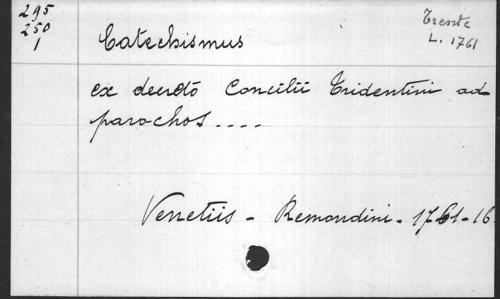 295
250
1
Trente
L. 1761
Catechismus
ex decretō Concilii Tridentini ad
parochos....
Venetiis - Remondini - 1761 - 16